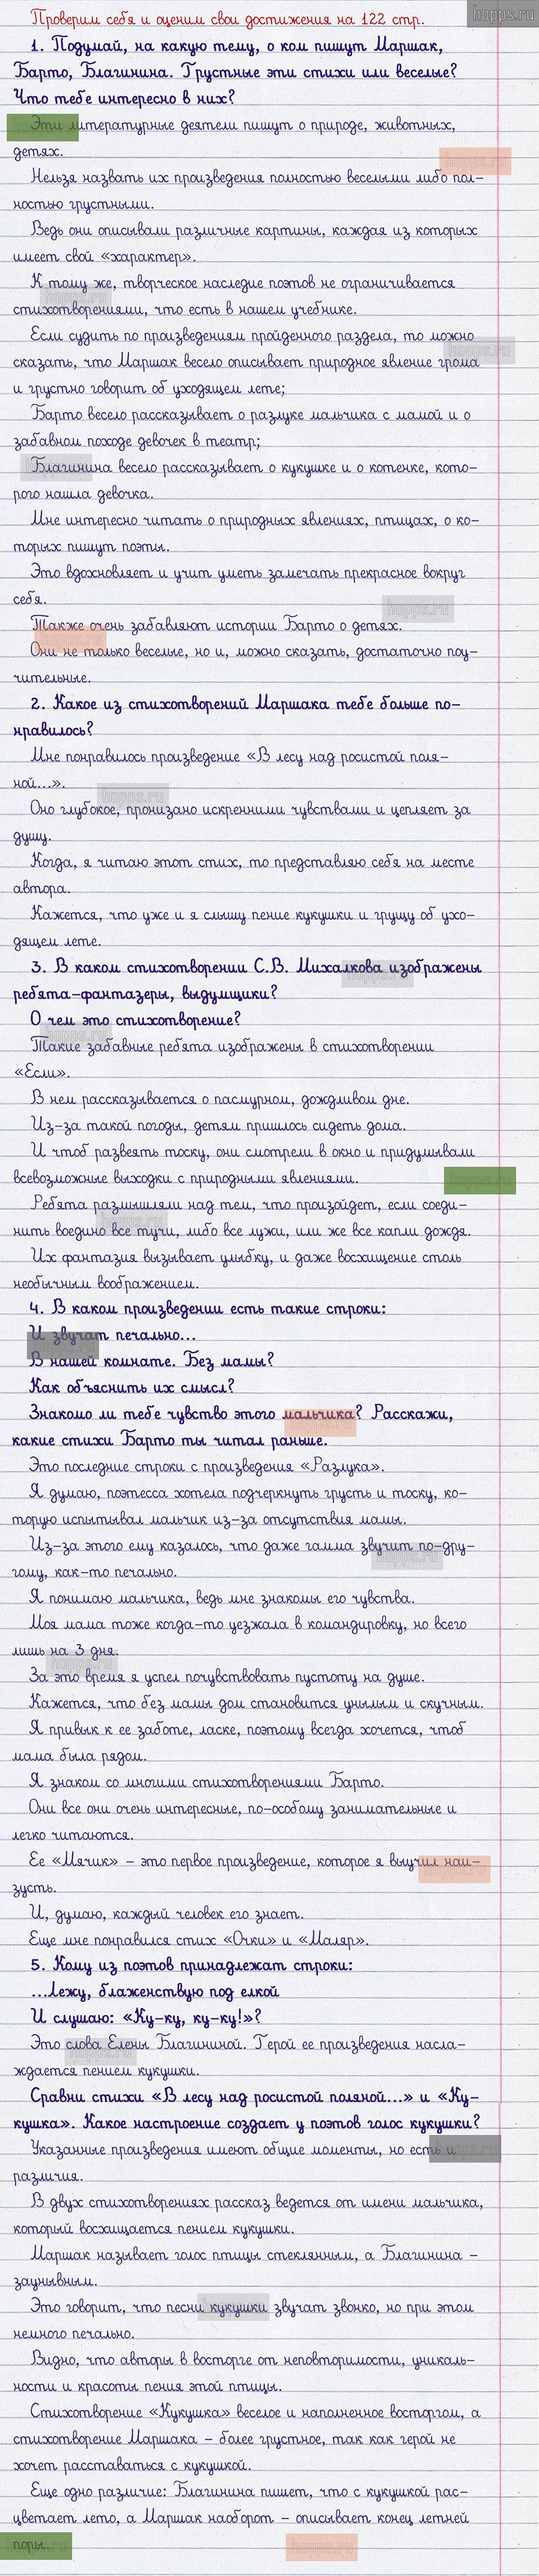 hopps.ru
Проверим себя и оценим свои достижения на 122 стр.
1. Подумай, на какую тему, о ком пишут Маршак,
Барто, Благинина. Грустные эти стихи или веселые?
Что тебе интересно в них?
Эти литературные деятели пишут о природе, животных,
детях.
Нельзя назвать их произведения полностью веселыми либо пол-
ностью грустными.
Ведь они описывали различные картины, каждая из которых
имеет свой «характер».
К тому же, творческое наследие поэтов не ограничивается
стихотворениями, что есть в нашем учебнике.
Если судить по произведениям пройденного раздела, то можно
сказать, что Маршак весело описывает природное явление грома
и грустно говорит об уходящем лете;
Барто весело рассказывает о разлуке мальчика с мамой и о
забавном походе девочек в театр;
Благинина весело рассказывает о кукушке и о котенке, кото-
рого нашла девочка.
Мне интересно читать о природных явлениях, птицах, о ко-
торых пишут поэты.
Это вдохновляет и учит уметь замечать прекрасное вокруг
себя.
Также очень забавляют истории Барто о детях.
Они не только веселые, но и, можно сказать, достаточно поу-
чительные.
2. Какое из стихотворений Маршака тебе больше по-
нравилось?
Мне понравилось произведение «В лесу над росистой поля-
ной...».
Оно глубокое, пронизано искренними чувствами и цепляет за
душу.
Когда, я читаю этот стих, то представляю себя на месте
автора.
Кажется, что уже и я слышу пение кукушки и грущу об ухо-
дящем лете.
3. В каком стихотворении С.В. Михалкова изображены
ребята-фантазеры, выдумщики?
О чем это стихотворение?
Такие забавные ребята изображены в стихотворении
«Если».
В нем рассказывается о пасмурном, дождливом дне.
Из-за такой погоды, детям пришлось сидеть дома.
И чтоб развеять тоску, они смотрели в окно и придумывали
всевозможные выходки с природными явлениями.
Ребята размышляли над тем, что произойдет, если соеди-
нить воедино все тучи, либо все лужи, или же все капли дождя.
Их фантазия вызывает улыбку, и даже восхищение столь
необычным воображением.
4. В каком произведении есть такие строки:
И звучат печально...
В нашей комнате. Без мамы?
Как объяснить их смысл?
Знакомо ли тебе чувство этого мальчика? Расскажи,
какие стихи Барто ты читал раньше.
Это последние строки с произведения «Разлука».
Я думаю, поэтесса хотела подчеркнуть грусть и тоску, ко-
торую испытывал мальчик из-за отсутствия мамы.
Из-за этого ему казалось, что даже гамма звучит по-дру-
гому, как-то печально.
Я понимаю мальчика, ведь мне знакомы его чувства.
Моя мама тоже когда-то уезжала в командировку, но всего
лишь на 3 дня.
За это время я успел почувствовать пустоту на душе.
Кажется, что без мамы дом становится унылым и скучным.
Я привык к ее заботе, ласке, поэтому всегда хочется, чтоб
мама была рядом.
Я знаком со многими стихотворениями Барто.
Они все они очень интересные, по-особому занимательные и
легко читаются.
Ее «Мячик» - это первое произведение, которое я выучил наи-
зусть.
И, думаю, каждый человек его знает.
Еще мне понравился стих «Очки» и «Маляр».
5. Кому из поэтов принадлежат строки:
...Лежу, блаженствую под елкой
И слушаю: «Ку-ку, ку-ку!»?
Это слова Елены Благининой. Герой ее произведения насла-
ждается пением кукушки.
Сравни стихи «В лесу над росистой поляной...» и «Ку-
кушка». Какое настроение создает у поэтов голос кукушки?
Указанные произведения имеют общие моменты, но есть и
различия.
В двух стихотворениях рассказ ведется от имени мальчика,
который восхищается пением кукушки.
Маршак называет голос птицы стеклянным, а Благинина -
заунывным.
Это говорит, что песни кукушки звучат звонко, но при этом
немного печально.
Видно, что авторы в восторге от неповторимости, уникаль-
ности и красоты пения этой птицы.
Стихотворение «Кукушка» веселое и наполненное восторгом, а
стихотворение Маршака - более грустное, так как герой не
хочет расставаться с кукушкой.
Еще одно различие: Благинина пишет, что с кукушкой рас-
цветает лето, а Маршак наоборот - описывает конец летней
поры.